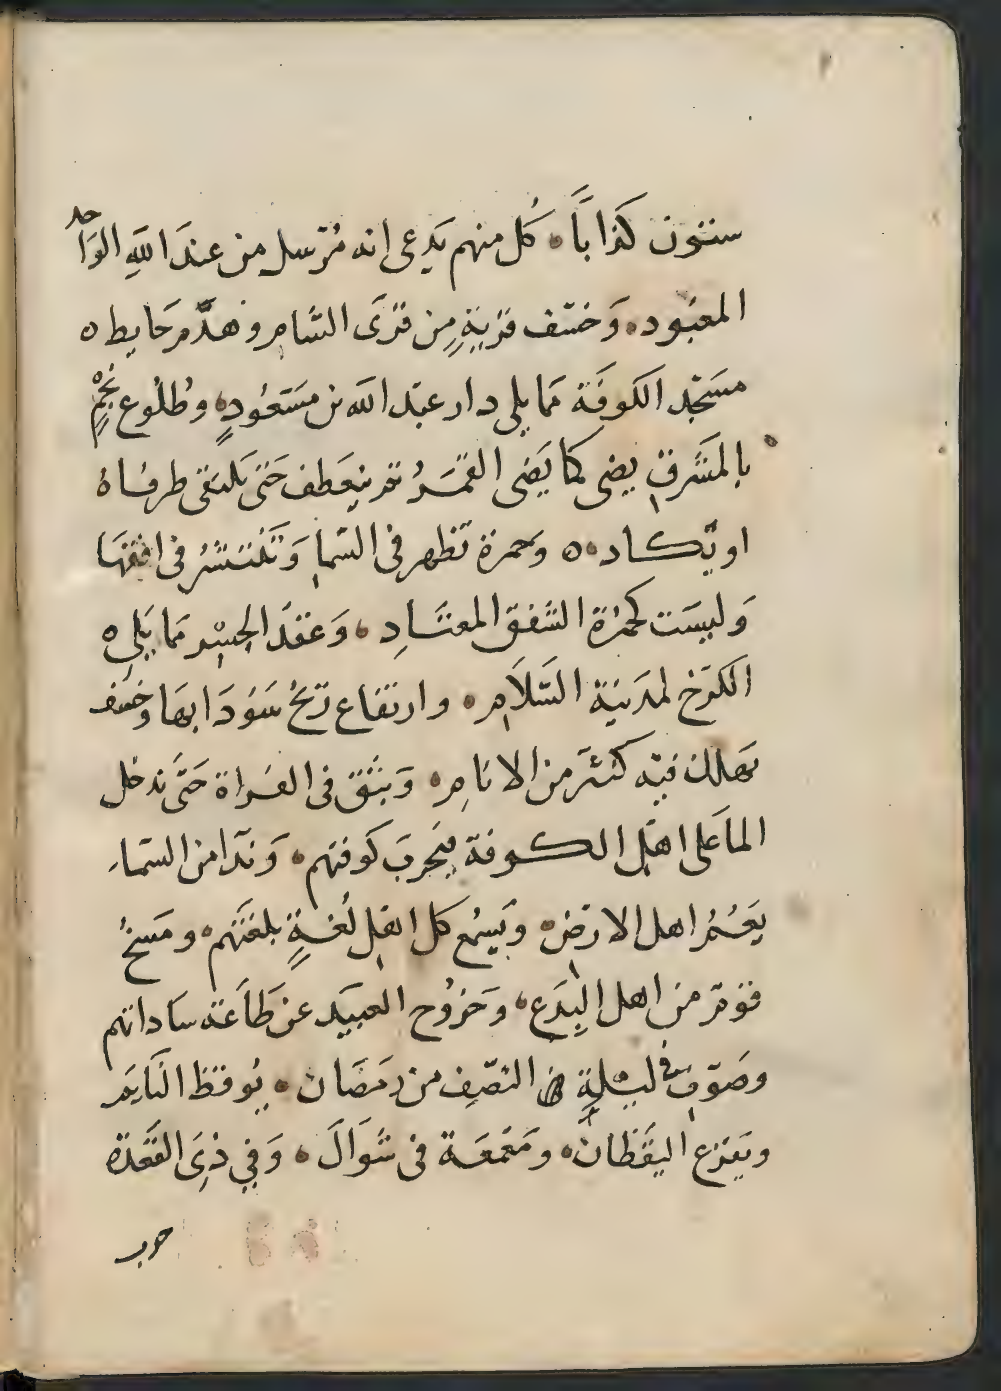 ستون كذابا ۰ كل منهم يدعى انه مرسل من عند الله الواحد
المعبود ۰ وخسف قرية من قرى الشام وهدم حايط ه
مسجد الكوفة مما يلي دار عبد الله بن مسعود ۰ وطلوع نجم
بالمشرق يضى كما يضى القمر ثم ينعطف حتى يلتقى طرفاه
او يكاد ۰ ه وحمرة تظهر في السما وتنتشر فى افقها
وليست كحمرة الشفق المعتاد ۰ وعقد الجسر مما يلي ه
الكرخ لمدينة السلام ۰ وارتفاع ريح سودا بها وخسف
يهلك فيه كثير من الانام ۰ وبثق فى الفراة حتى تدخل
الما على اهل الكوفة فيخرب كوفتهم ۰ وندا من السماء
يعم اهل الارض ۰ ويسمع كل اهل لغة بلغتهم ۰ ومسخ
قوم من اهل البدع ۰ وخروج العبيد عن طاعة ساداتهم
وصوت في ليلة النصف من رمضان ۰ يوقظ النايم
ويفزع اليقظان ۰ ومعمعة فى شوال ۰ وفي ذي القعدة
حرب